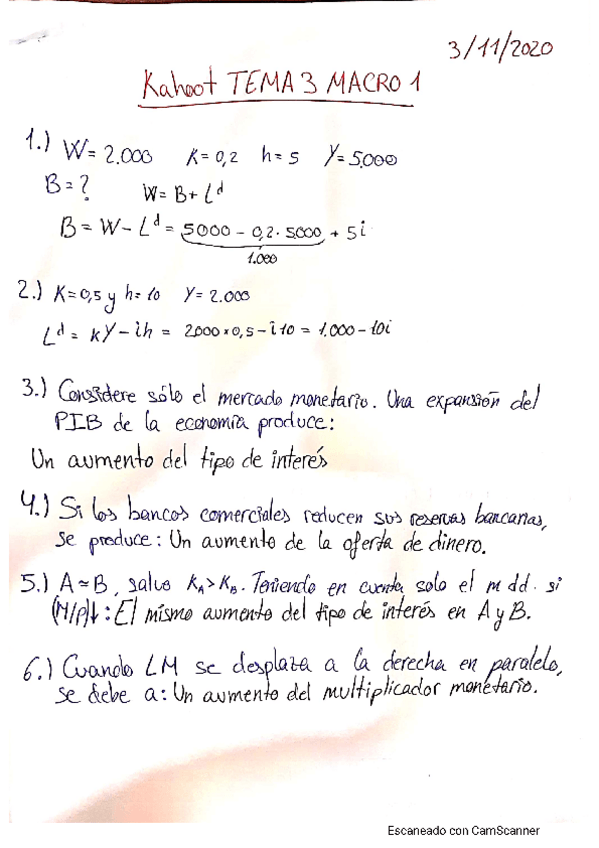 3/11/2020
Kahoot TEMA 3 MACRO 1
1.) W= 2.000 K=0,2 h=5 Y=5.000
B=? W= B+L^d
B= W-L^d = 5000 - 0,2·5.000 + 5i
1.000
2.) K=0,5 y h=10 Y=2.000
L^d = KY-ih = 2000×0,5-i10 = 1.000-10i
3.) Considere sólo el mercado monetario. Una expansión del
PIB de la economía produce:
Un aumento del tipo de interés
4.) Si los bancos comerciales reducen sus reservas bancarias,
se produce: Un aumento de la oferta de dinero.
5.) A≃B, salvo K_A>K_B. Teniendo en cuenta solo el m dd. si
(M/P)↓: El mismo aumento del tipo de interés en A y B.
6.) Cuando LM se desplaza a la derecha en paralelo,
se debe a: Un aumento del multiplicador monetario.
Escaneado con CamScanner